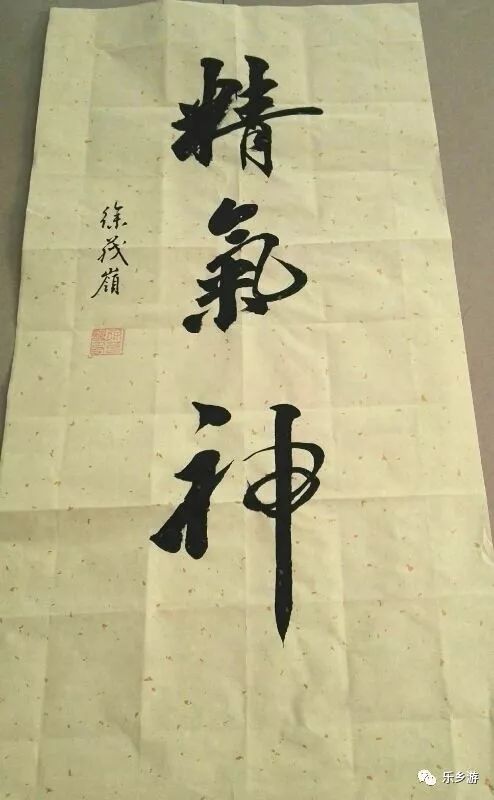 精氣神
徐茂嶺
乐乡游